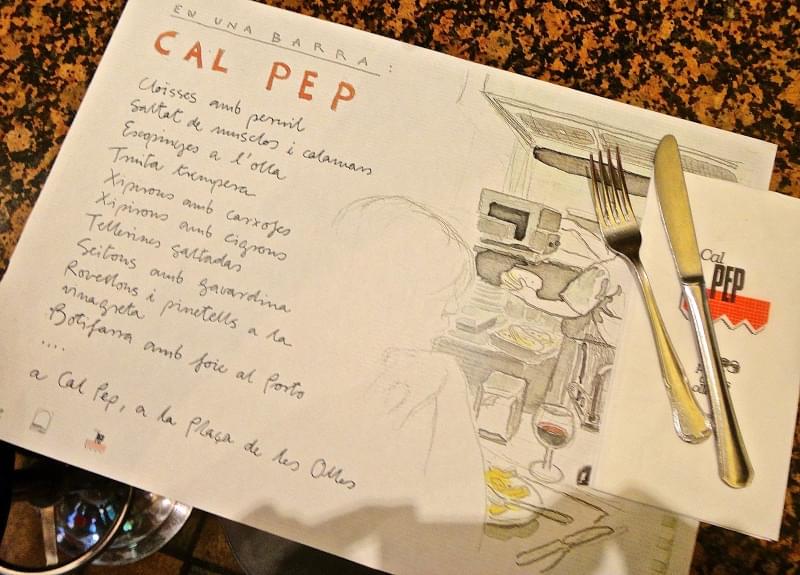 EN UNA BARRA:
CAL PEP
Cloïsses amb pernil
Saltat de musclos i calamars
Escopinyes a l'olla
Truita trempera
Xipirons amb carxofes
Xipirons amb cigrons
Tellerines saltades
Seitons amb gavardina
Rovellons i pinetells a la
vinagreta
Botifarra amb foie al Porto
....
a Cal Pep, a la Plaça de les Olles
Cal
PEP